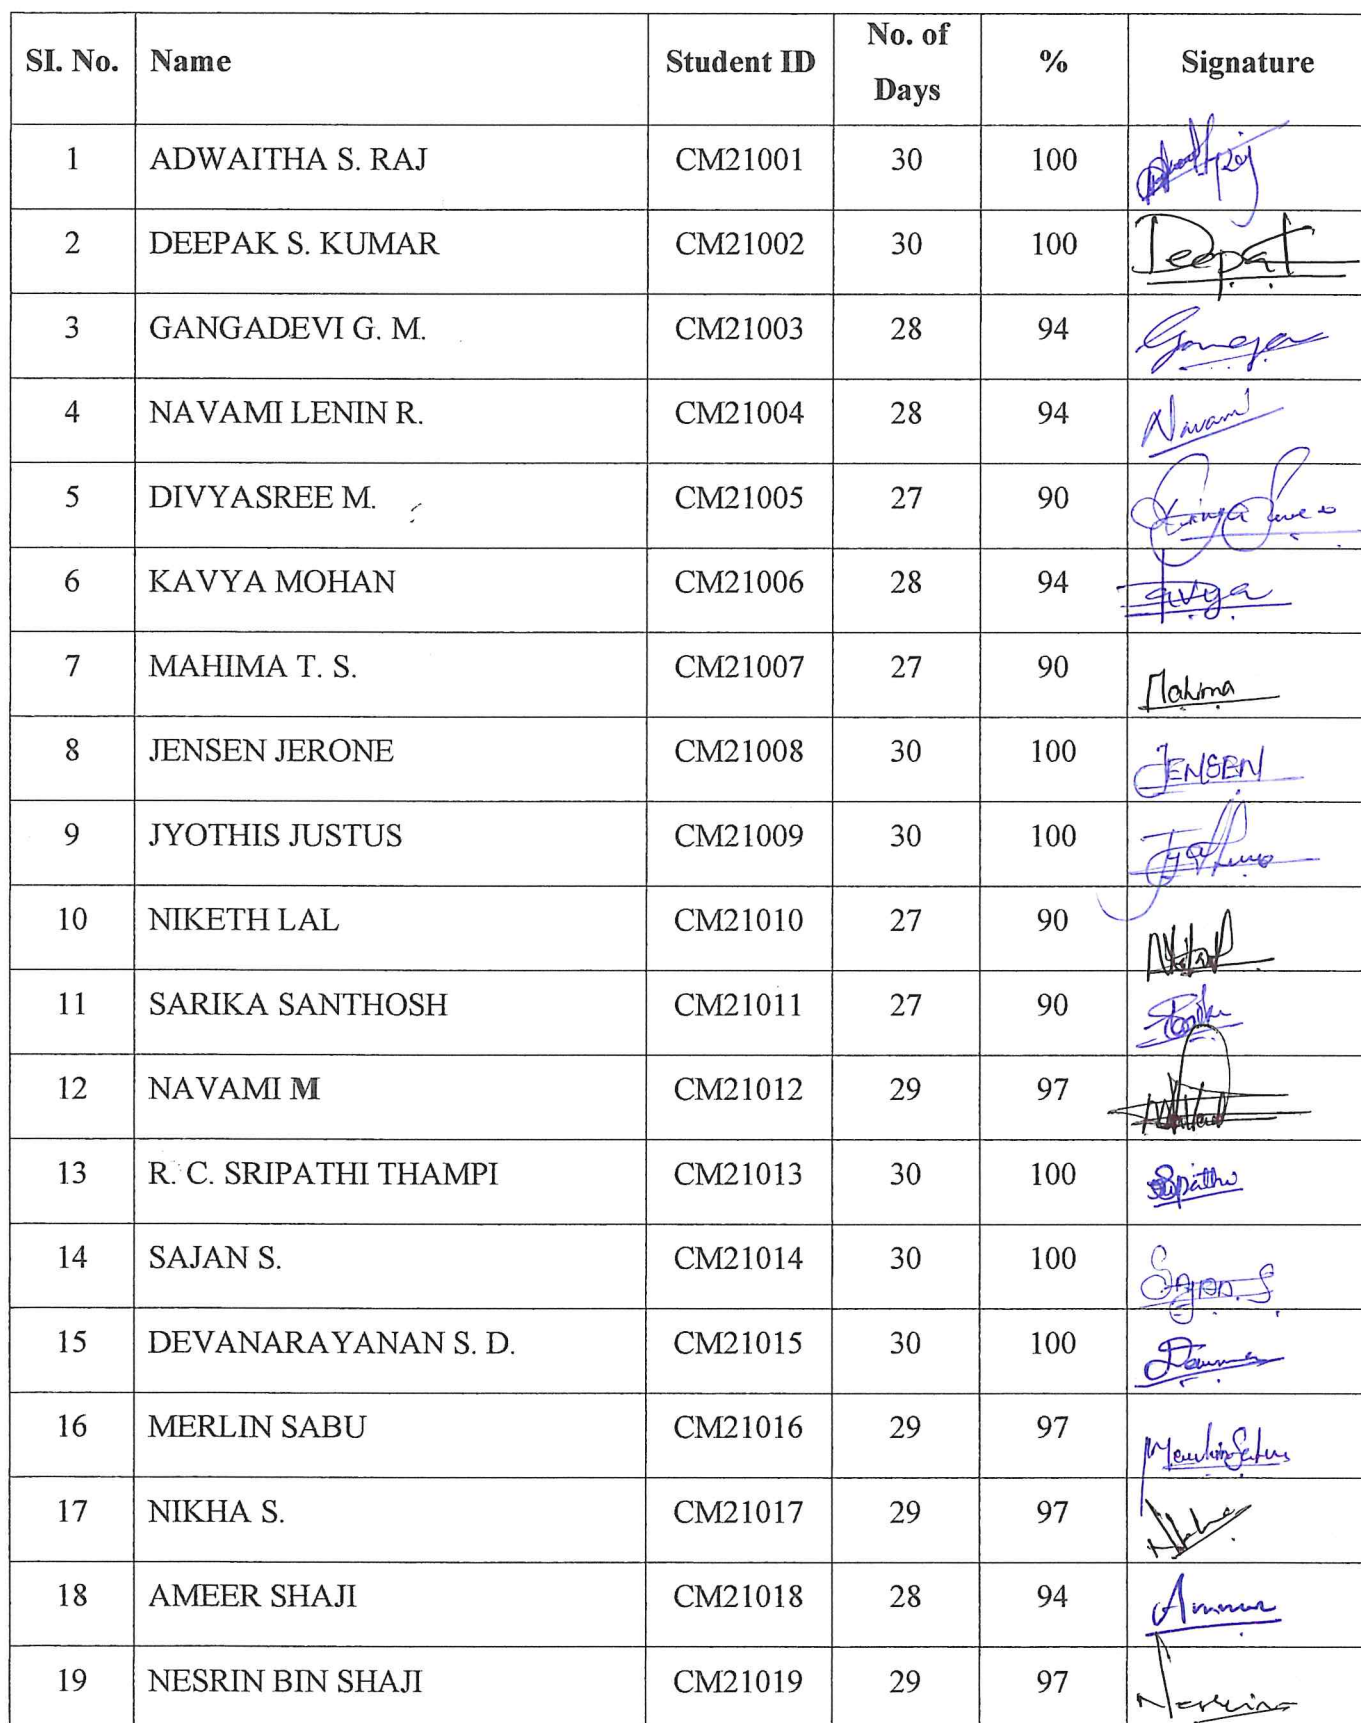 SI. No. Name Student ID No. of Days % Signature
1 ADWAITHA S. RAJ CM21001 30 100
2 DEEPAK S. KUMAR CM21002 30 100 Deepak
3 GANGADEVI G. M. CM21003 28 94 Ganga
4 NAVAMI LENIN R. CM21004 28 94 Navami
5 DIVYASREE M. CM21005 27 90
6 KAVYA MOHAN CM21006 28 94 Kavya
7 MAHIMA T. S. CM21007 27 90 Mahima
8 JENSEN JERONE CM21008 30 100 JENSEN
9 JYOTHIS JUSTUS CM21009 30 100
10 NIKETH LAL CM21010 27 90
11 SARIKA SANTHOSH CM21011 27 90
12 NAVAMI M CM21012 29 97
13 R. C. SRIPATHI THAMPI CM21013 30 100
14 SAJAN S. CM21014 30 100 Sajan. S
15 DEVANARAYANAN S. D. CM21015 30 100
16 MERLIN SABU CM21016 29 97 Merlin Sabu
17 NIKHA S. CM21017 29 97
18 AMEER SHAJI CM21018 28 94
19 NESRIN BIN SHAJI CM21019 29 97